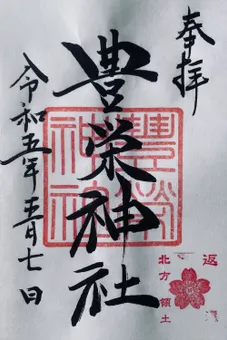 奉拝
豊栄神社
豐榮神社
令和五年五月七日
北方領土
返